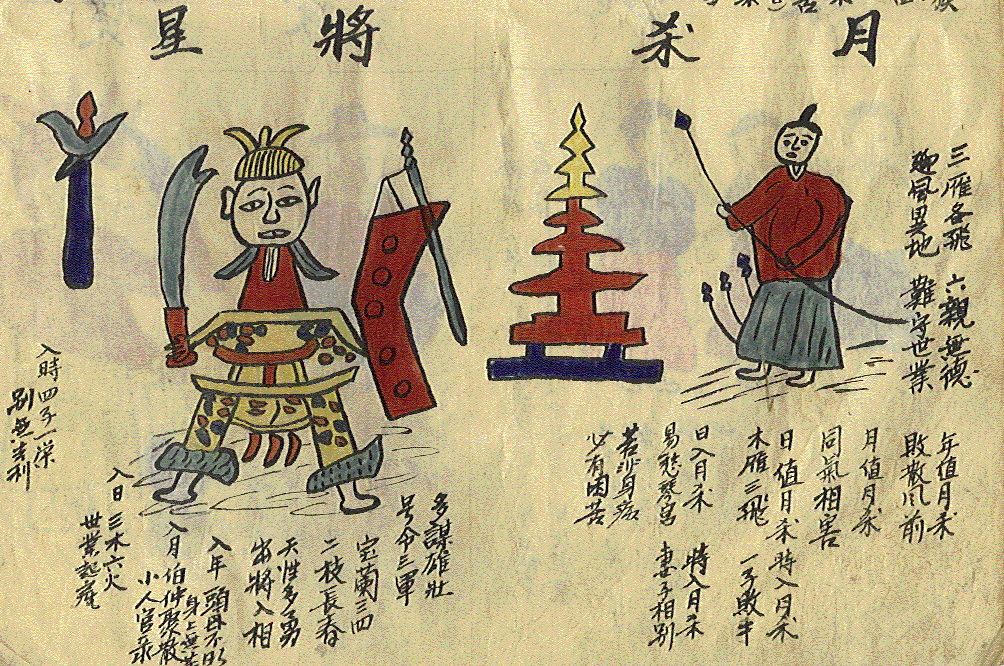 月殺
三雁各飛 六親無德
迎風異地 難守世業
年值月殺
敗散風前
月值月殺
同氣相害
日值月殺 時入月殺
木雁三飛 一子敗半
日入月殺 時入月殺
妻子相別
必有困苦
將星
多謀雄壯
号令三軍
宝蘭三四
二枝長春
天性多勇
出將入相
入年
入月 伯仲聚散
小人官彔
入日 三木六火
世業起癈
入時四子一榮
別無吉利